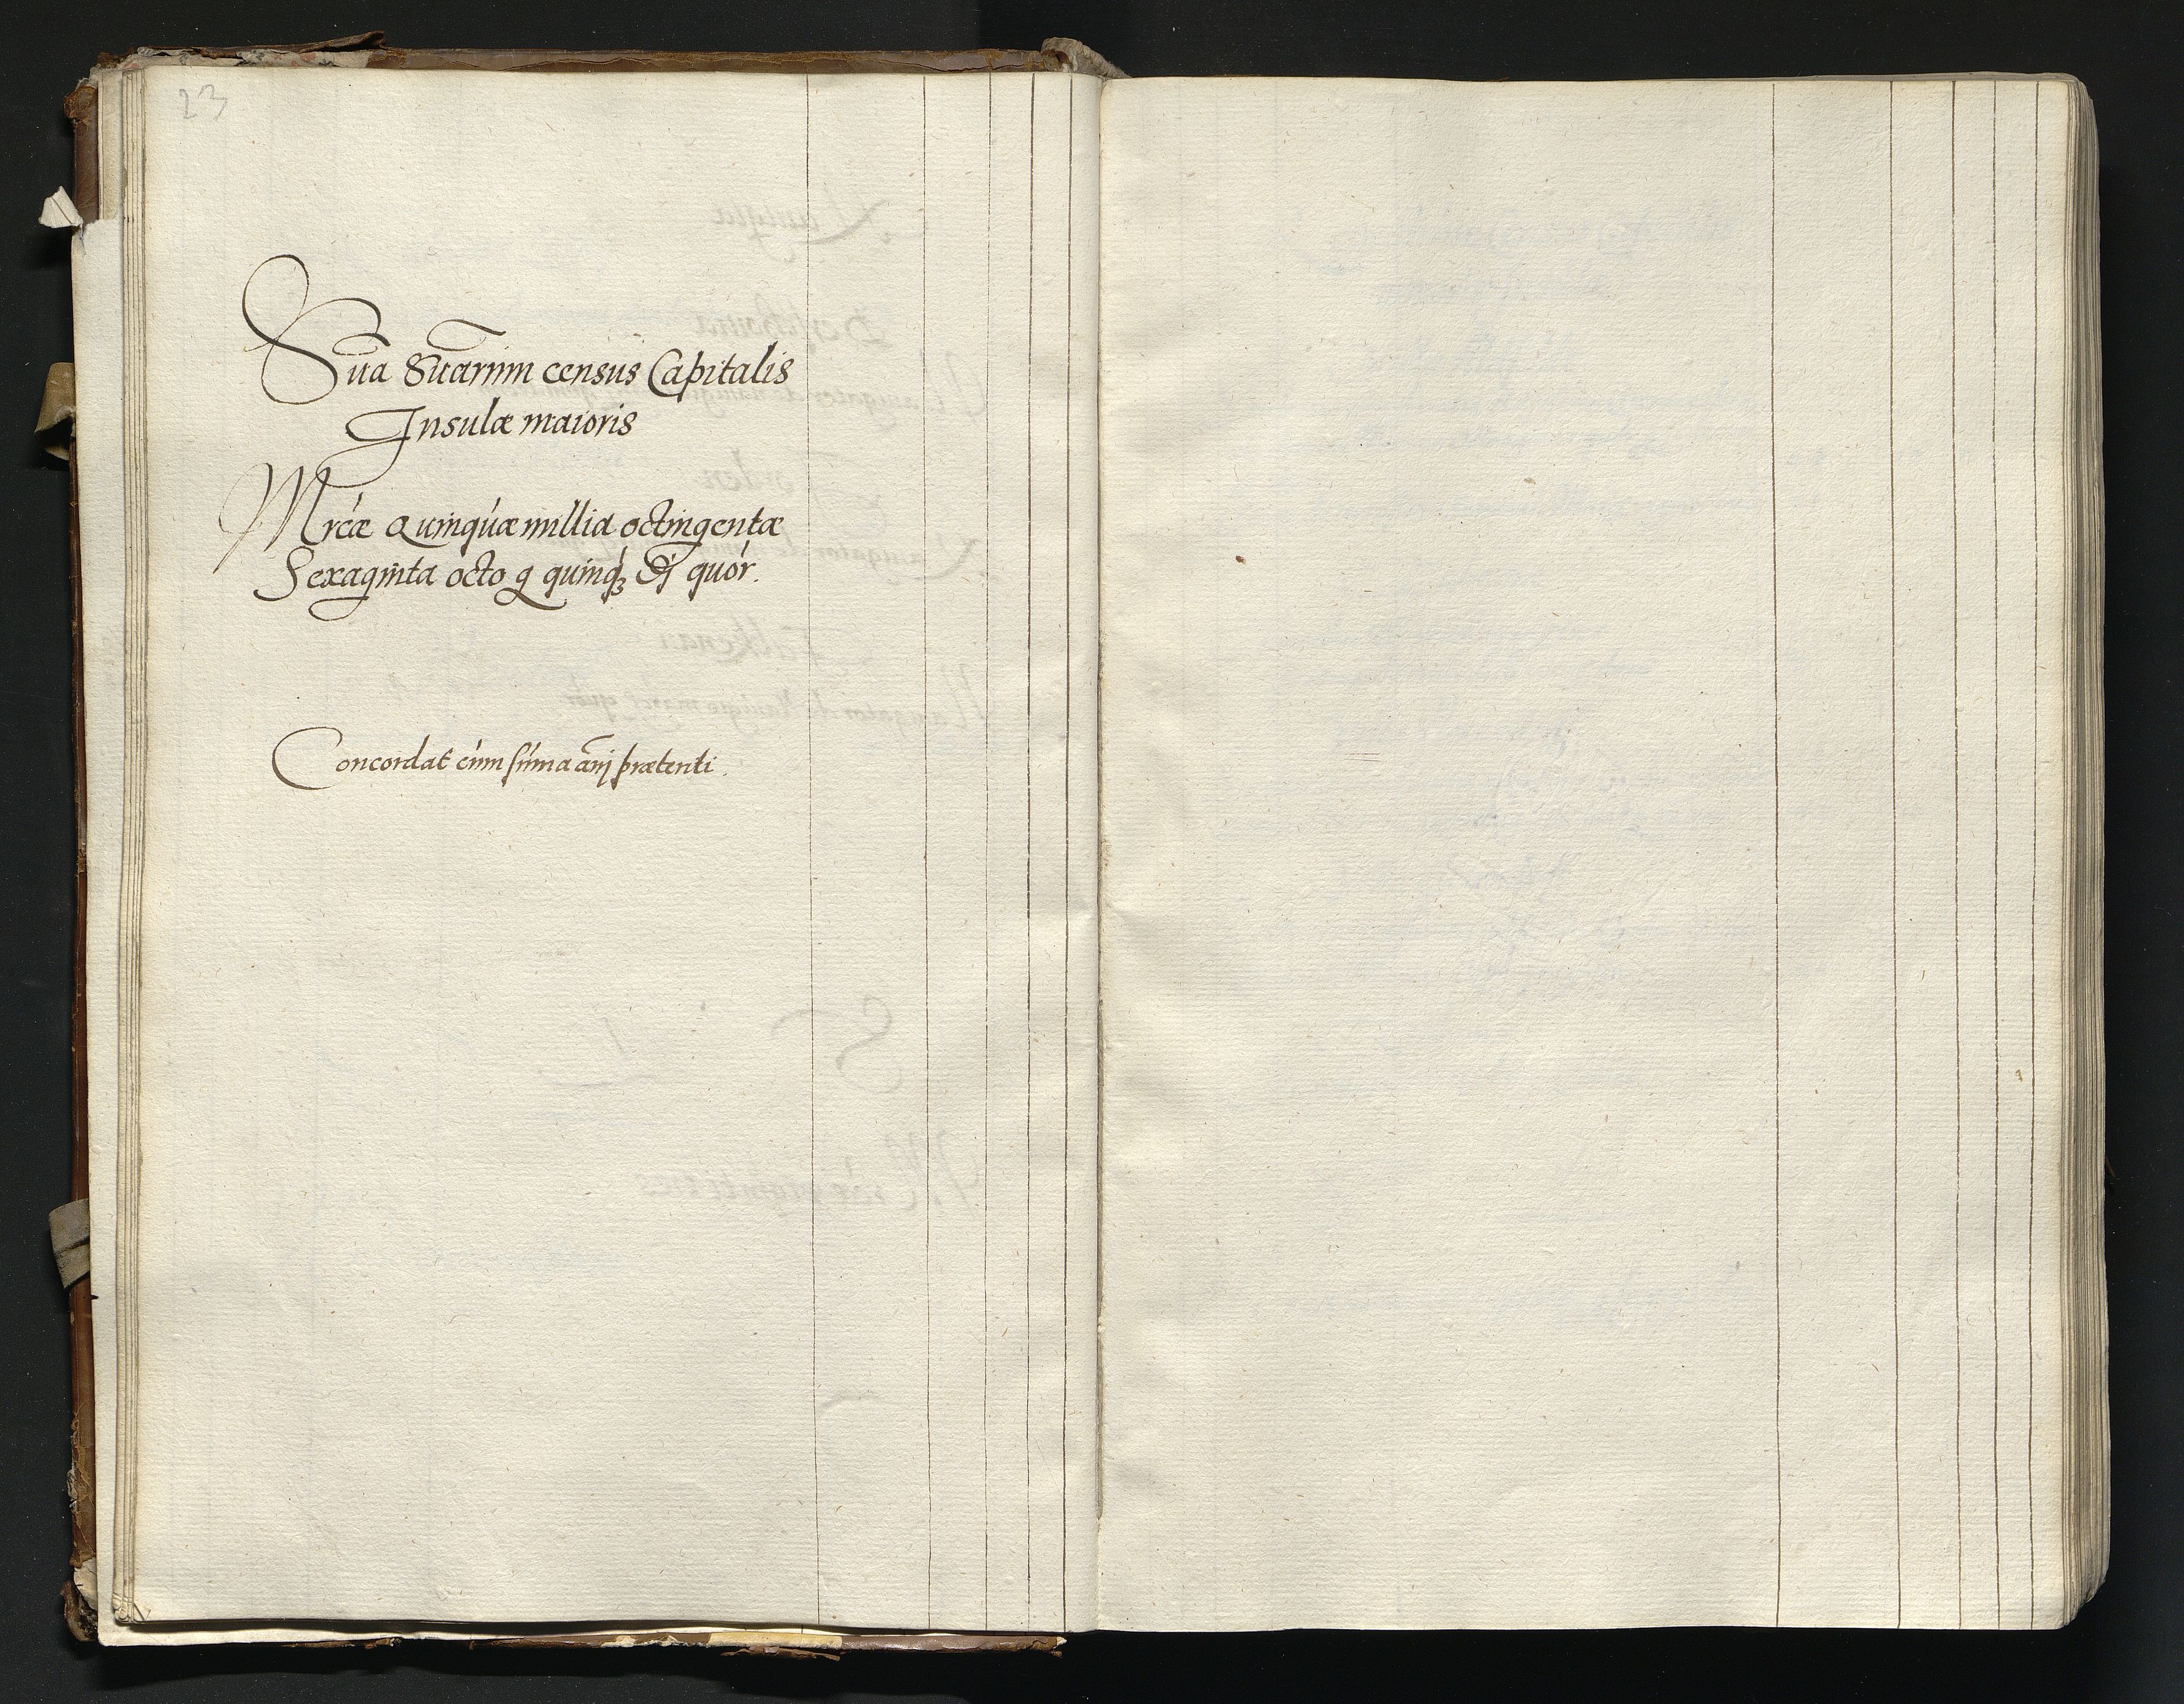 23
Su̅a Sua̅rum census Capitalis
Insulæ maioris
Mrcæ Quinquæ millia octingentæ
Sexaginta octo g quinq₃ quor.
Concordat cum su̅ma an̅j prætenti.